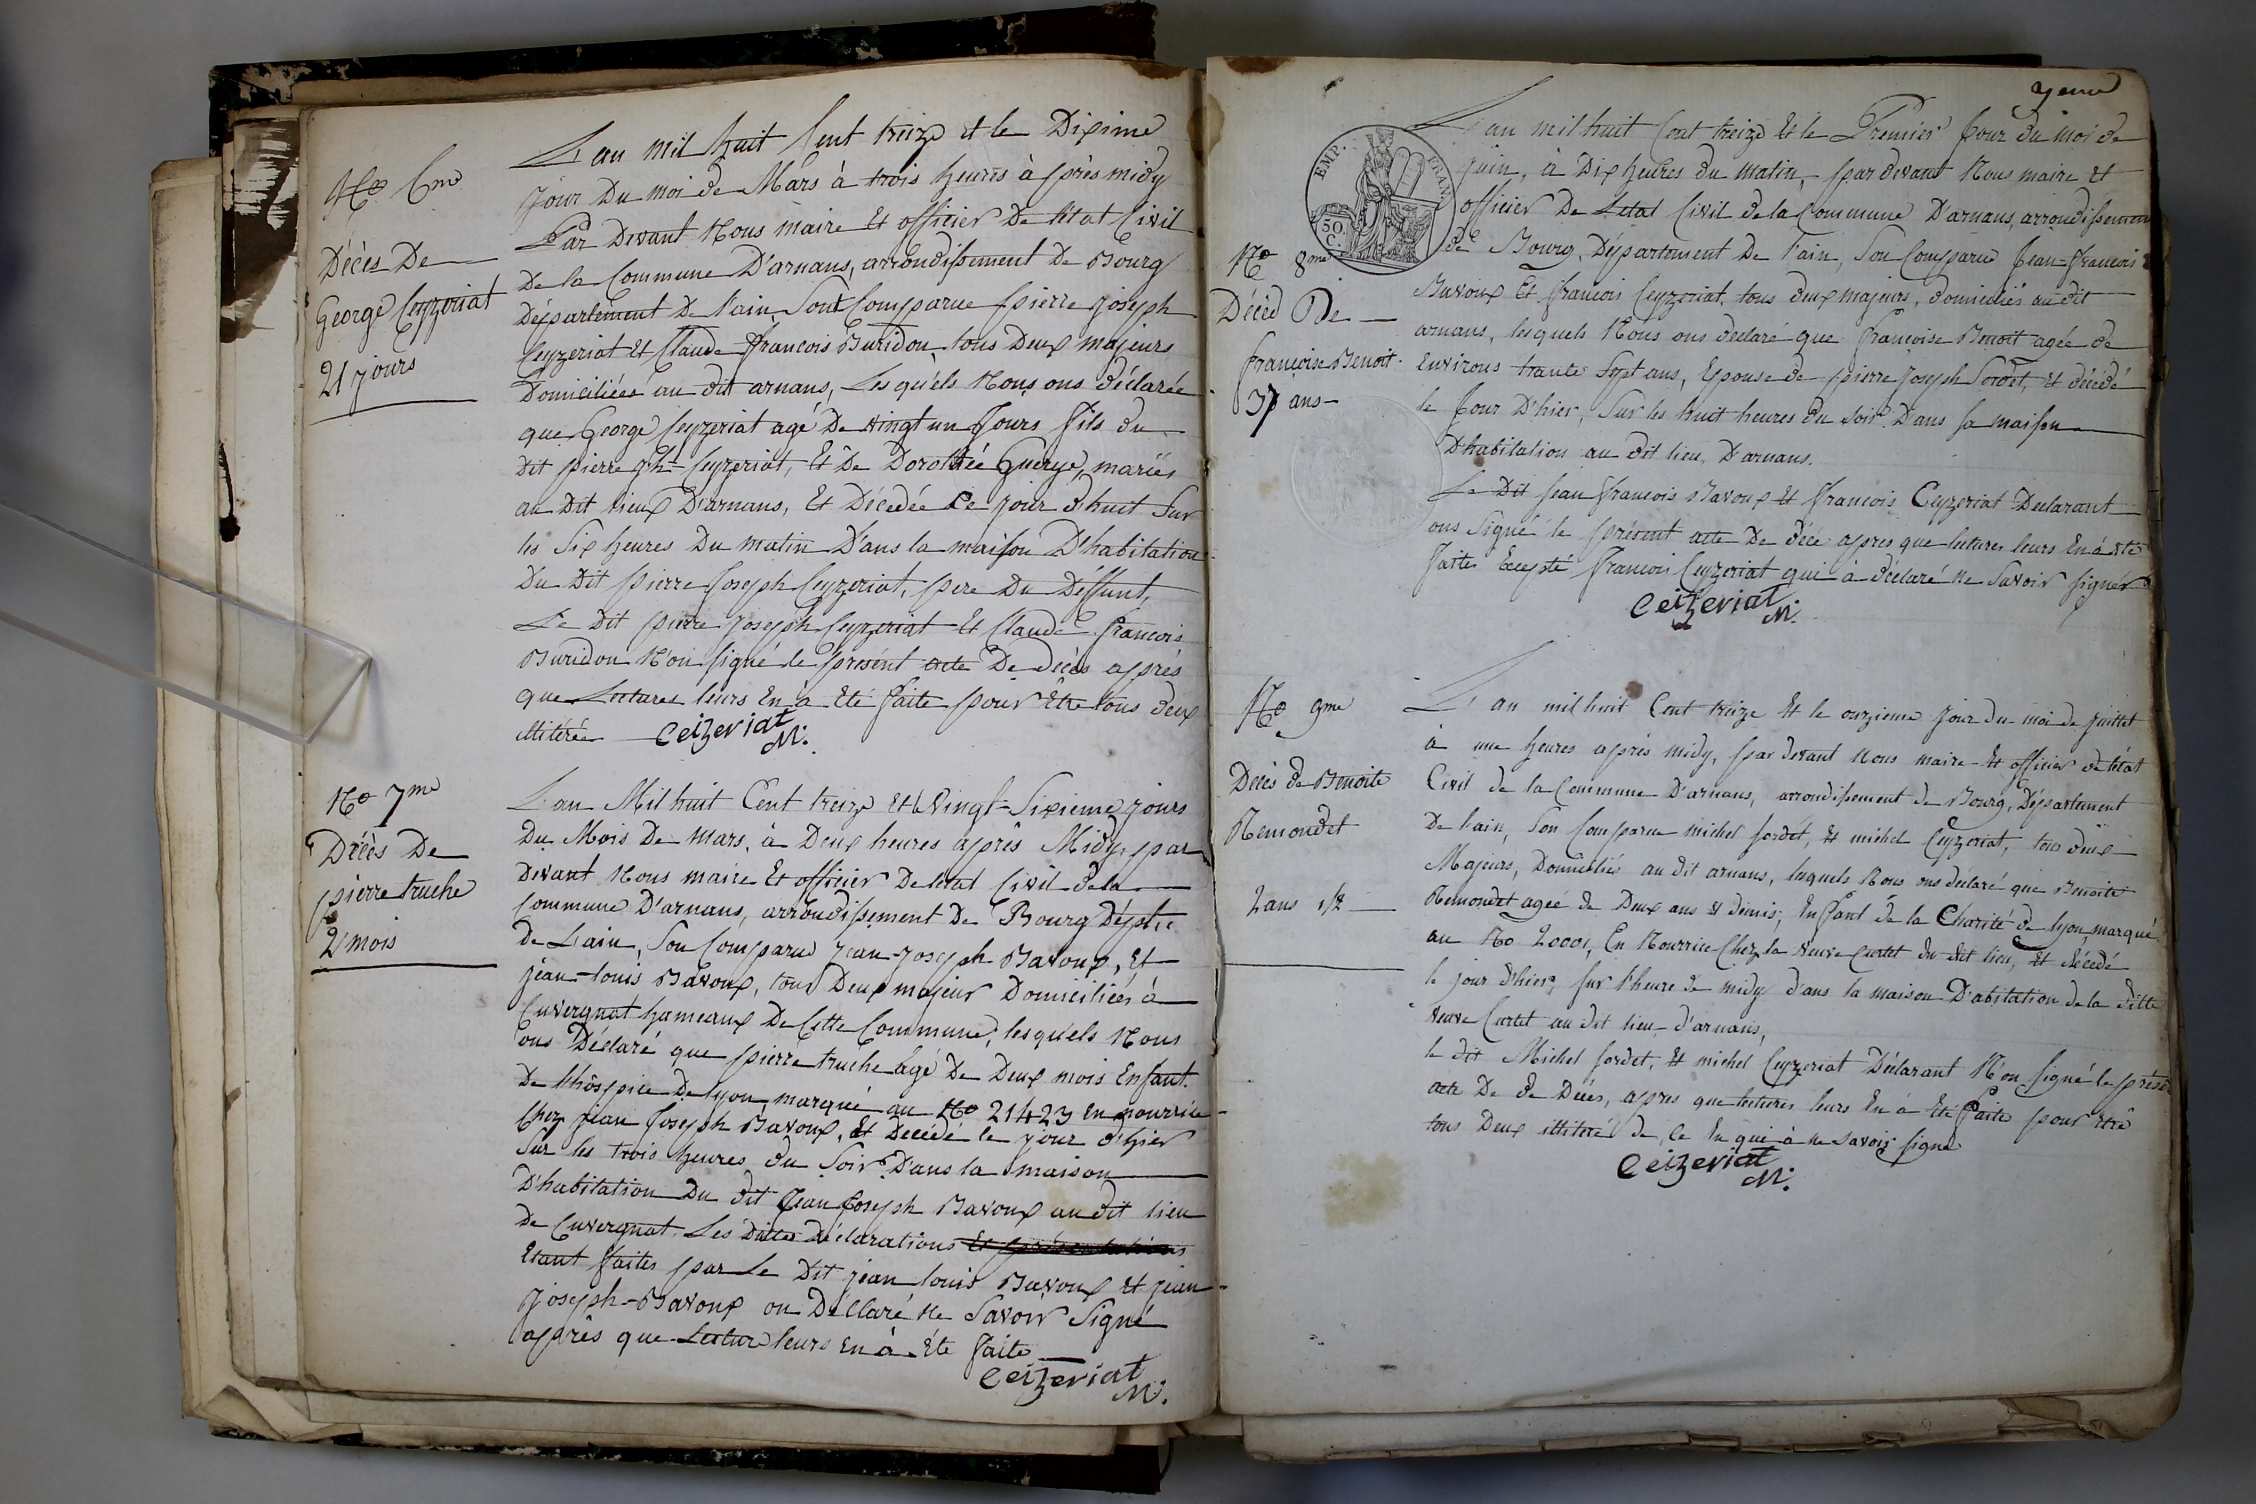 No 6me
Décès De
George Ceyzeriat
21 jours
L'an mil huit Cent treize et le Dixime
jour Du moi de Mars à trois heures à près midy
Par Devant Nous maire Et officier De létat Civil
De la Commune D'arnans, arrondissement De Bourg
Département De l'ain, Sont Comparue pierre joseph
Ceyzeriat Et Claude François Buridon, tous Deux majeurs
Domiciliées au dit arnans, Lesquels Nous ons déclarée
que George Ceyzeriat agé De vingt un Jours fils du
Dit pierre jph Ceyzeriat, Et De Dorothée Guerye, mariés
au Dit lieux D'arnans, Et Décedée Ce jour d'huit Sur
les Six heures Du matin D'ans la maison D'habitation
Du Dit pierre Joseph Ceyzeriat, pere Du Déffunt,
Le Dit pierre joseph Ceyzeriat Et Claude françois
Buridon Non signé le présent acte De Décès après
que Lectures leurs En à Eté faite pour Etre tous deux
illitérée Ceizeriat M.
No 7me
Décès De
pierre truche
2 mois
L'an Mil huit Cent treize Et Vingt-Sixieme jours
Du Mois De Mars, à Deux heures après Midy, par
Devant Nous maire Et officier De létat Civil dela
Commune D'arnans, arrondissement De Bourg Déptre
De Lain, Son Comparue jean-joseph Bavoux, Et
jean-louis Bavoux, tous Deux majeur Domiciliées à
Cuvergnat hameaux De Cette Commune, lesquels Nous
ons Déclaré que pierre truche âgé De Deux mois Enfant
De l'hôspice De lyon, marqué au No 21423 en nourrice
Chez jean Joseph Bavoux, Et Decédé le jour d'hier
Sur les trois heures du Soir Dans la maison
D'habitation Du dit Jean Joseph Bavoux au dit lieu
De Cuvergnat. Les Dittes Déclarations Et présentations
Etant faites par Le Dit jean louis Bavoux Et jean
joseph-Bavoux on Décllaré Ne Savoir Signé
après que Lecture leurs En à Été faite
Ceizeriat M.
No 8me
Décèd De
françoise Benoit
37 ans
EMP. FRAN.
50. C.
L'an mil huit Cent treize Et le Premier Jour du moi de
juin, à Dix heures du Matin, par devant Nous maire Et
officier De Letat Civil de la Commune D'arnans, arrondissement
de Bourg, Département De l'ain, Son Comparue Jean-françois
Bavoux Et François Ceyzeriat, tous deux majeurs, domiciliés au dit
arnans, lesquels Nous ons declaré que françoise Benoit agée de
Environs trante Sept ans, Epouse de pierre joseph Sordet, Et décédé
le Jour D'hier, Sur les huit heures du Soir D'ans sa maison
D'habitation au dit lieu D'arnans.
Le Dit jean françois Bavoux Et françois Ceyzeriat Déclarant
ons Signé le présent acte De décé apres que lectures leurs En à Eté
faites Excepté François Ceyzeriat qui à déclaré Ne Savoir signér
Ceizeriat M.
No 9me
Décès de Benoite
Remondet
2 ans 1/2
L'an mil huit Cent treize Et le onzieme jour du moi de juillet
à une heures après midy, par devant Nous maire Et officier de létat
Civil de la Commune D'arnans, arrondissement de Bourg, Département
De l'ain, Son Comparue michel sordet, Et michel Ceyzeriat, tous deux
Majeurs, Domiciliés au dit arnans, lesquels Nous ons declaré que Benoite
Remondet agée de Deux ans Et demis, Enffant de la Charité de lyon, marqué
au No 20001, En Nourrice Chez la veuve Curtet du dit lieu, Et décedé
le jour d'hier, sur l'heure de midy d'ans la maison D'abitation de la ditte
veuve Curtet au dit lieu d'arnans,
le dit Michel sordet, Et michel Ceyzeriat Déclarant N'on signé le présent
acte De de Décés, apres que lectures leurs En à Eté faite pour etre
tous Deux illiteré de Ce En qui à Ne Savoir signé
Ceizeriat M.